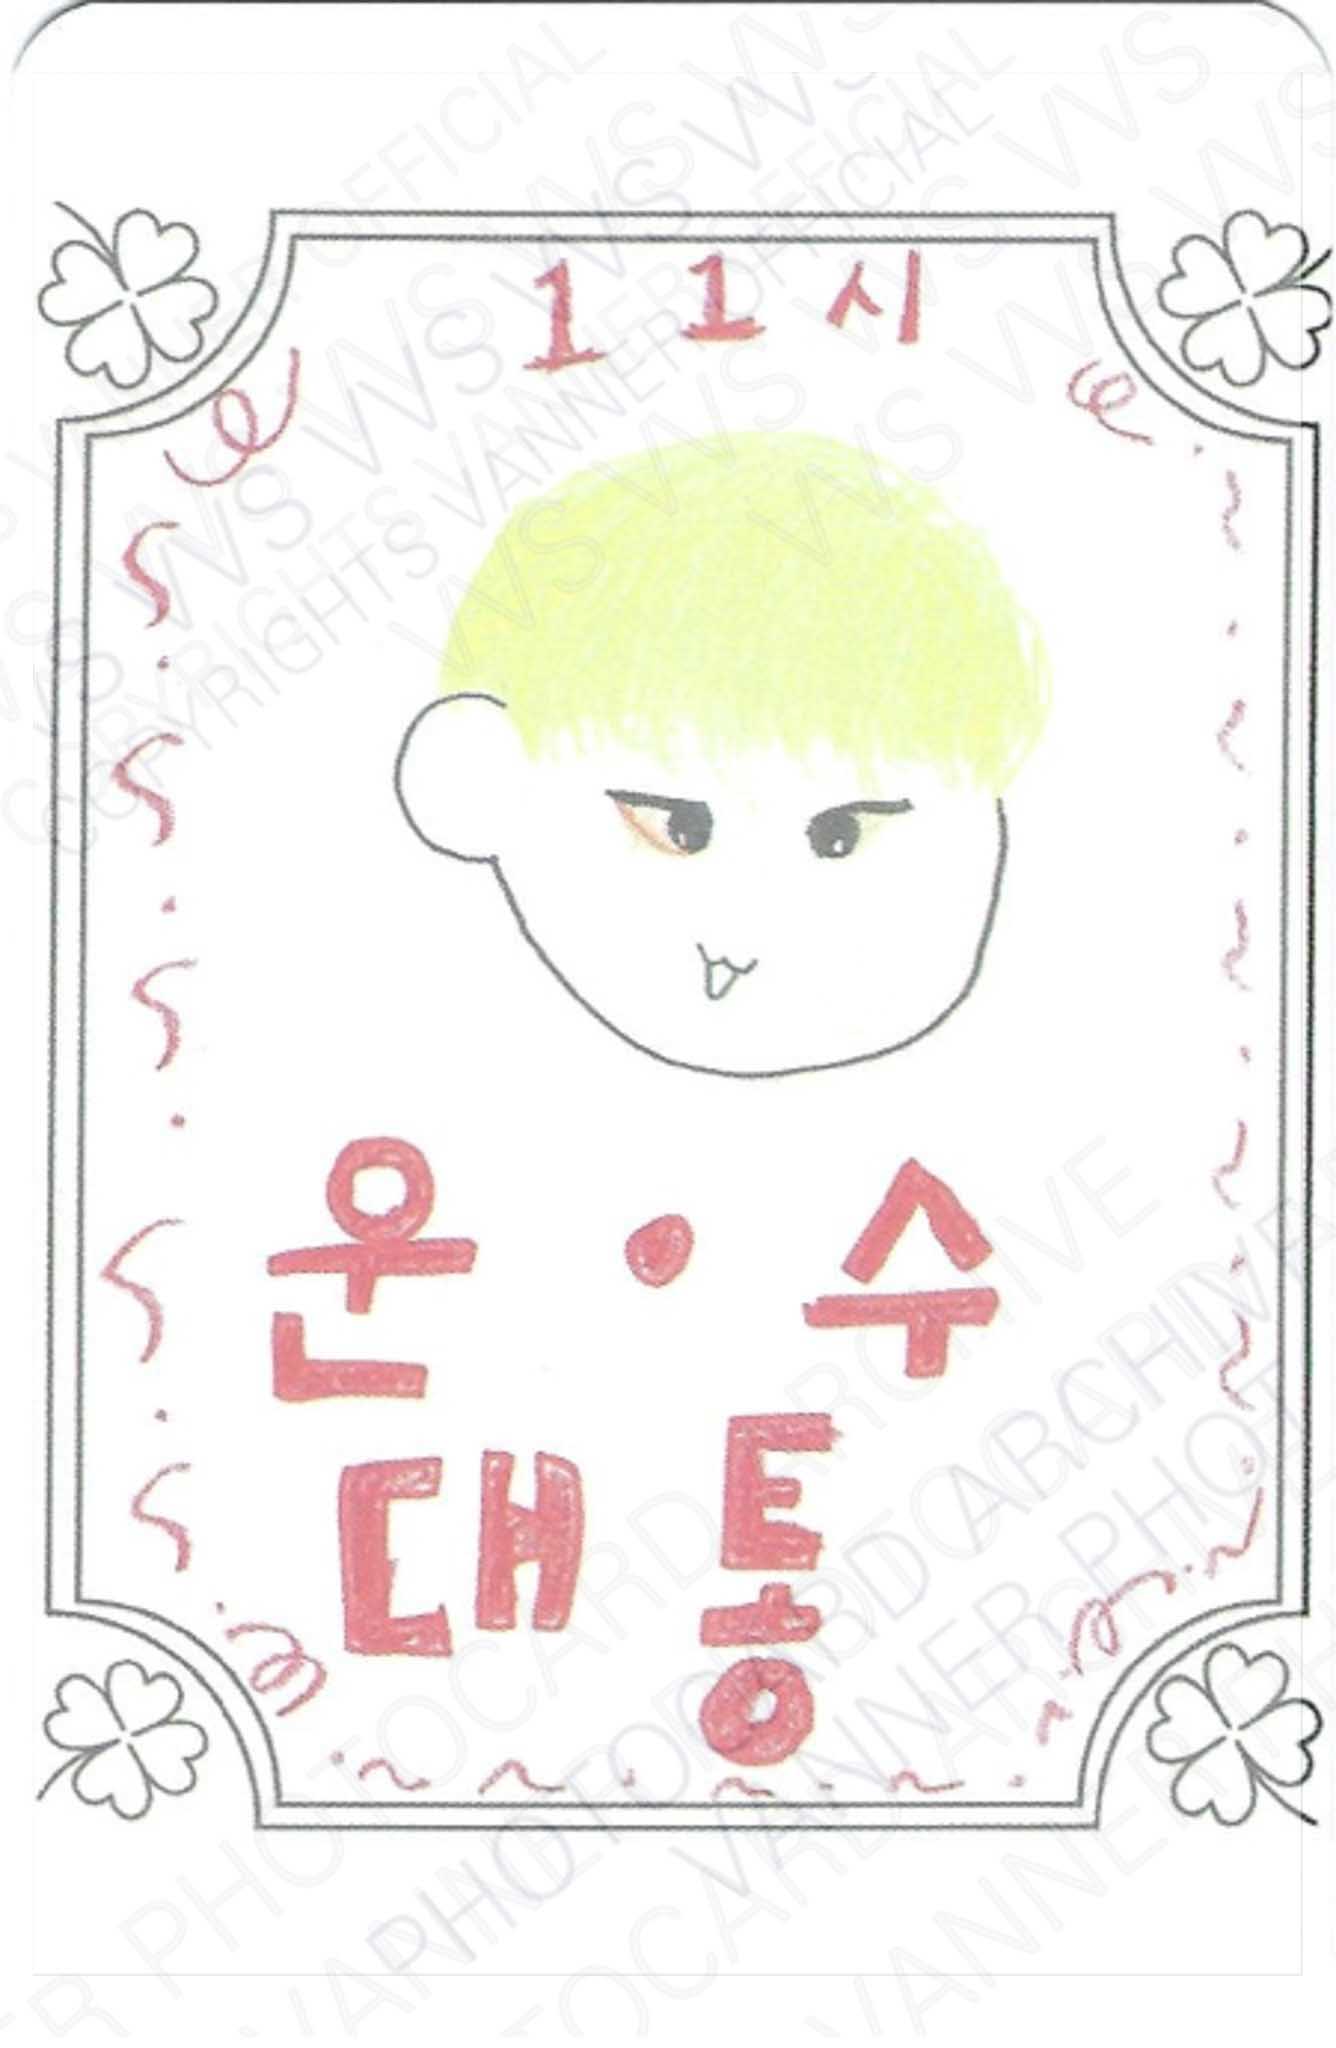 11시
운·수
대통
VVS VVS VVS
COPYRIGHTS VANNER OFFICIAL
VANNER PHOTOCARD ARCHIVE